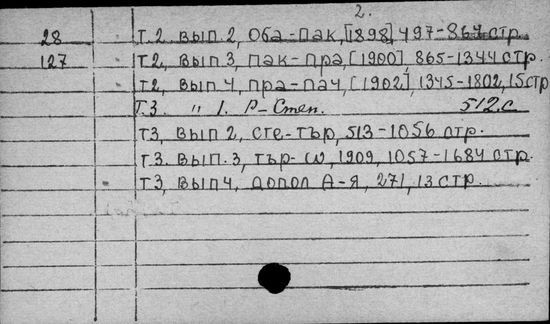 2.
28 Т.2. вып. 2, Оба-Пак, [1898] 497-864 стр.
127 Т2, вып 3, Пак-Пра, [1900] 865-1344 стр.
Т2, вып 4, Пра-Пач, [1902], 1345-1802, 15 стр
Т.3. " 1. Р-Стен. 512.с
Т3, вып 2, Сте-Тър, 513-1056 стр.
Т.3. вып. 3, Тър-Ѡ, 1909, 1057-1684 стр.
Т3, вып 4, допол А-Я, 271, 13 стр.